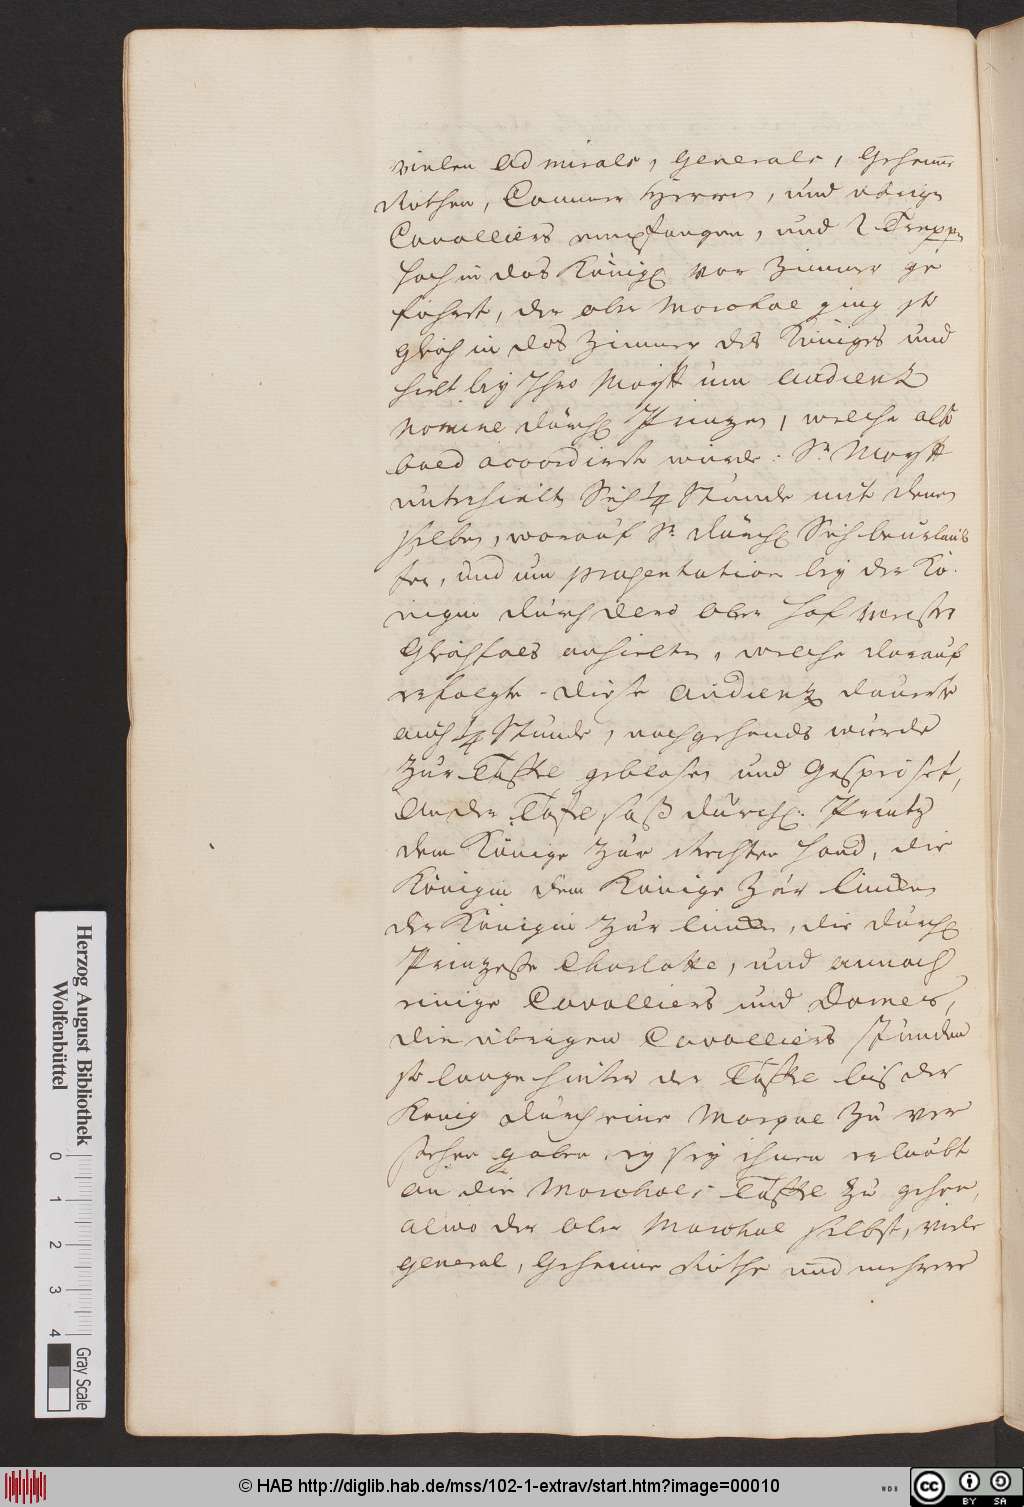 vielen Admirals, Generals, Geheime
Räthen, Cammer Herren, und übrige
Cavalliers empfangen, und 2 Trepp
hoch in das Königl. Vor Zimmer ge
führt, der ober Marchal ging so
gleich in das Zimmer des Königes und
hielt bey Ihro Mayst um Audientz
Nomine Durchl Printzen, welche als
bald accordirte wurde. Sr. Mayst
unterhielte Sich 1/4 Stunde mit denen
selben, worauf Sr. Durchl Sich beurlaub
ten, und um praesentation bey der Kö
nigin durch dero Ober Hof Meister
Gleichfals anhielten, welche darauf
erfolgte. diese Audientz dauerte
auch 1/4 Stunde, nachgehends wurde
zur Taffel geblasen und Gespeiset,
An der Tafel saß Durchl. Printz
dem Könige zur Rechten Hand, die
Königin dem Könige zur lincken
der Königin zur lincken, die Durchl
Prinzesse Charlotte, und annoch
einige Cavalliers und Dames,
die übrigen Cavalliers stunden
so lange hinter der Taffel bis der
König durch eine Marque zu ver
stehen gaben, es sey ihnen erlaubt
an die Marchals Taffel zu gehen,
alwo der ober Marchal selbst, viele
General, Geheime Räthe und mehrere
Herzog August Bibliothek
Wolfenbüttel
0 1 2 3 4
Gray Scale
© HAB http://diglib.hab.de/mss/102-1-extrav/start.htm?image=00010
WDB
cc BY SA